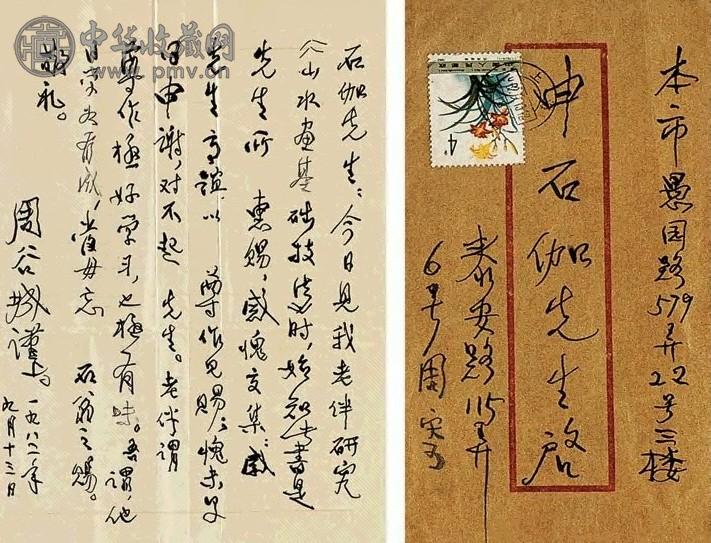 中华收藏网
www.pmv.cn
石伽先生：今日見我老伴研究
《山水画基础技法》时，始知此书是
先生所 惠赐，感愧交集；感
先生高誼以 尊作见赐；愧未及
早申谢，对不起 先生。老伴谓
尊作極好学习，也極有味。吾谓，他
日学如有成，当毋忘 石翁之赐。
敬礼。
周谷城谨上。一九八二年
九月十三日
本市愚园路579弄22号三楼
申石伽先生啟
泰安路115弄
6号周寓